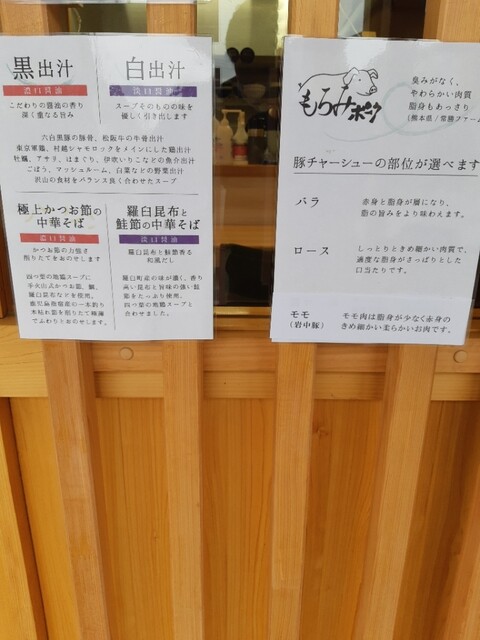 黒出汁
濃口醤油
こだわりの醤油の香り
深く重なる旨み
白出汁
淡口醤油
スープそのものの味を
優しく引き出します
六白黒豚の豚骨、松阪牛の牛骨出汁
東京軍鶏、村越シャモロックをメインにした鶏出汁
牡蠣、アサリ、はまぐり、伊吹いりこなどの魚介出汁
ごぼう、マッシュルーム、白菜などの野菜出汁
沢山の食材をバランス良く合わせたスープ
極上かつお節の
中華そば
濃口醤油
かつお節の力強さ
削りたてをおのせします
四つ葉の地鶏スープに
手火山式かつお節、鯖、
羅臼昆布などを使用。
鹿児島指宿産の一本釣り
本枯れ節を削りたて極薄
でふわりとおのせします。
羅臼昆布と
鮭節の中華そば
淡口醤油
羅臼昆布と鮭節香る
和風だし
羅臼町産の味が濃く、香り
高い昆布と旨味の強い鮭
節をたっぷり使用。
四つ葉の地鶏スープと
合わせました。
もろみポーク
臭みがなく、
やわらかい肉質
脂身もあっさり
(熊本県/常陸ファーム
豚チャーシューの部位が選べます
バラ
赤身と脂身が層になり、
脂の旨みをより味わえます。
ロース
しっとりときめ細かい肉質で、
適度な脂身がさっぱりとした
口当たりです。
モモ
(岩中豚)
モモ肉は脂身が少なく赤身の
きめ細かい柔らかいお肉です。